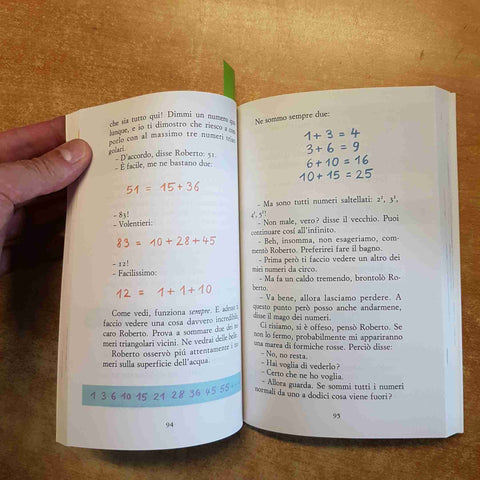 che sia tutto qui! Dimmi un numero qua-
lunque, e io ti dimostro che riesco a com-
porlo con al massimo tre numeri trian-
golari.
– D'accordo, disse Roberto: 51.
– È facile, me ne bastano due:
51 = 15+36
– 83!
– Volentieri:
83 = 10+28+45
– 12!
– Facilissimo:
12 = 1+1+10
Come vedi, funziona sempre. E adesso
faccio vedere una cosa davvero incredibile,
caro Roberto. Prova a sommare due dei nu-
meri triangolari vicini. Ne vedrai delle belle.
Roberto osservò più attentamente i nu-
meri sulla superficie dell'acqua.
1 3 6 10 15 21 28 36 45 55
94
Ne sommo sempre due:
1+3 = 4
3+6 = 9
6+10 = 16
10+15 = 25
– Ma sono tutti numeri saltellati: 2², 3²,
4², 5²!
– Non male, vero? disse il vecchio. Puoi
continuare così all'infinito.
– Beh, insomma, non esageriamo, com-
mentò Roberto. Preferirei fare il bagno.
– Prima però ti faccio vedere un altro dei
miei numeri da circo.
– Ma fa un caldo tremendo, brontolò Ro-
berto.
– Va bene, allora lasciamo perdere. A
questo punto però posso anche andarmene,
disse il mago dei numeri.
Ci risiamo, si è offeso, pensò Roberto. Se
non lo fermo, probabilmente mi appariranno
una marea di formiche rosse. Perciò disse:
– No, no resta.
– Hai voglia di vederlo?
– Certo che ne ho voglia.
– Allora guarda. Se sommi tutti i numeri
normali da uno a dodici cosa viene fuori?
95